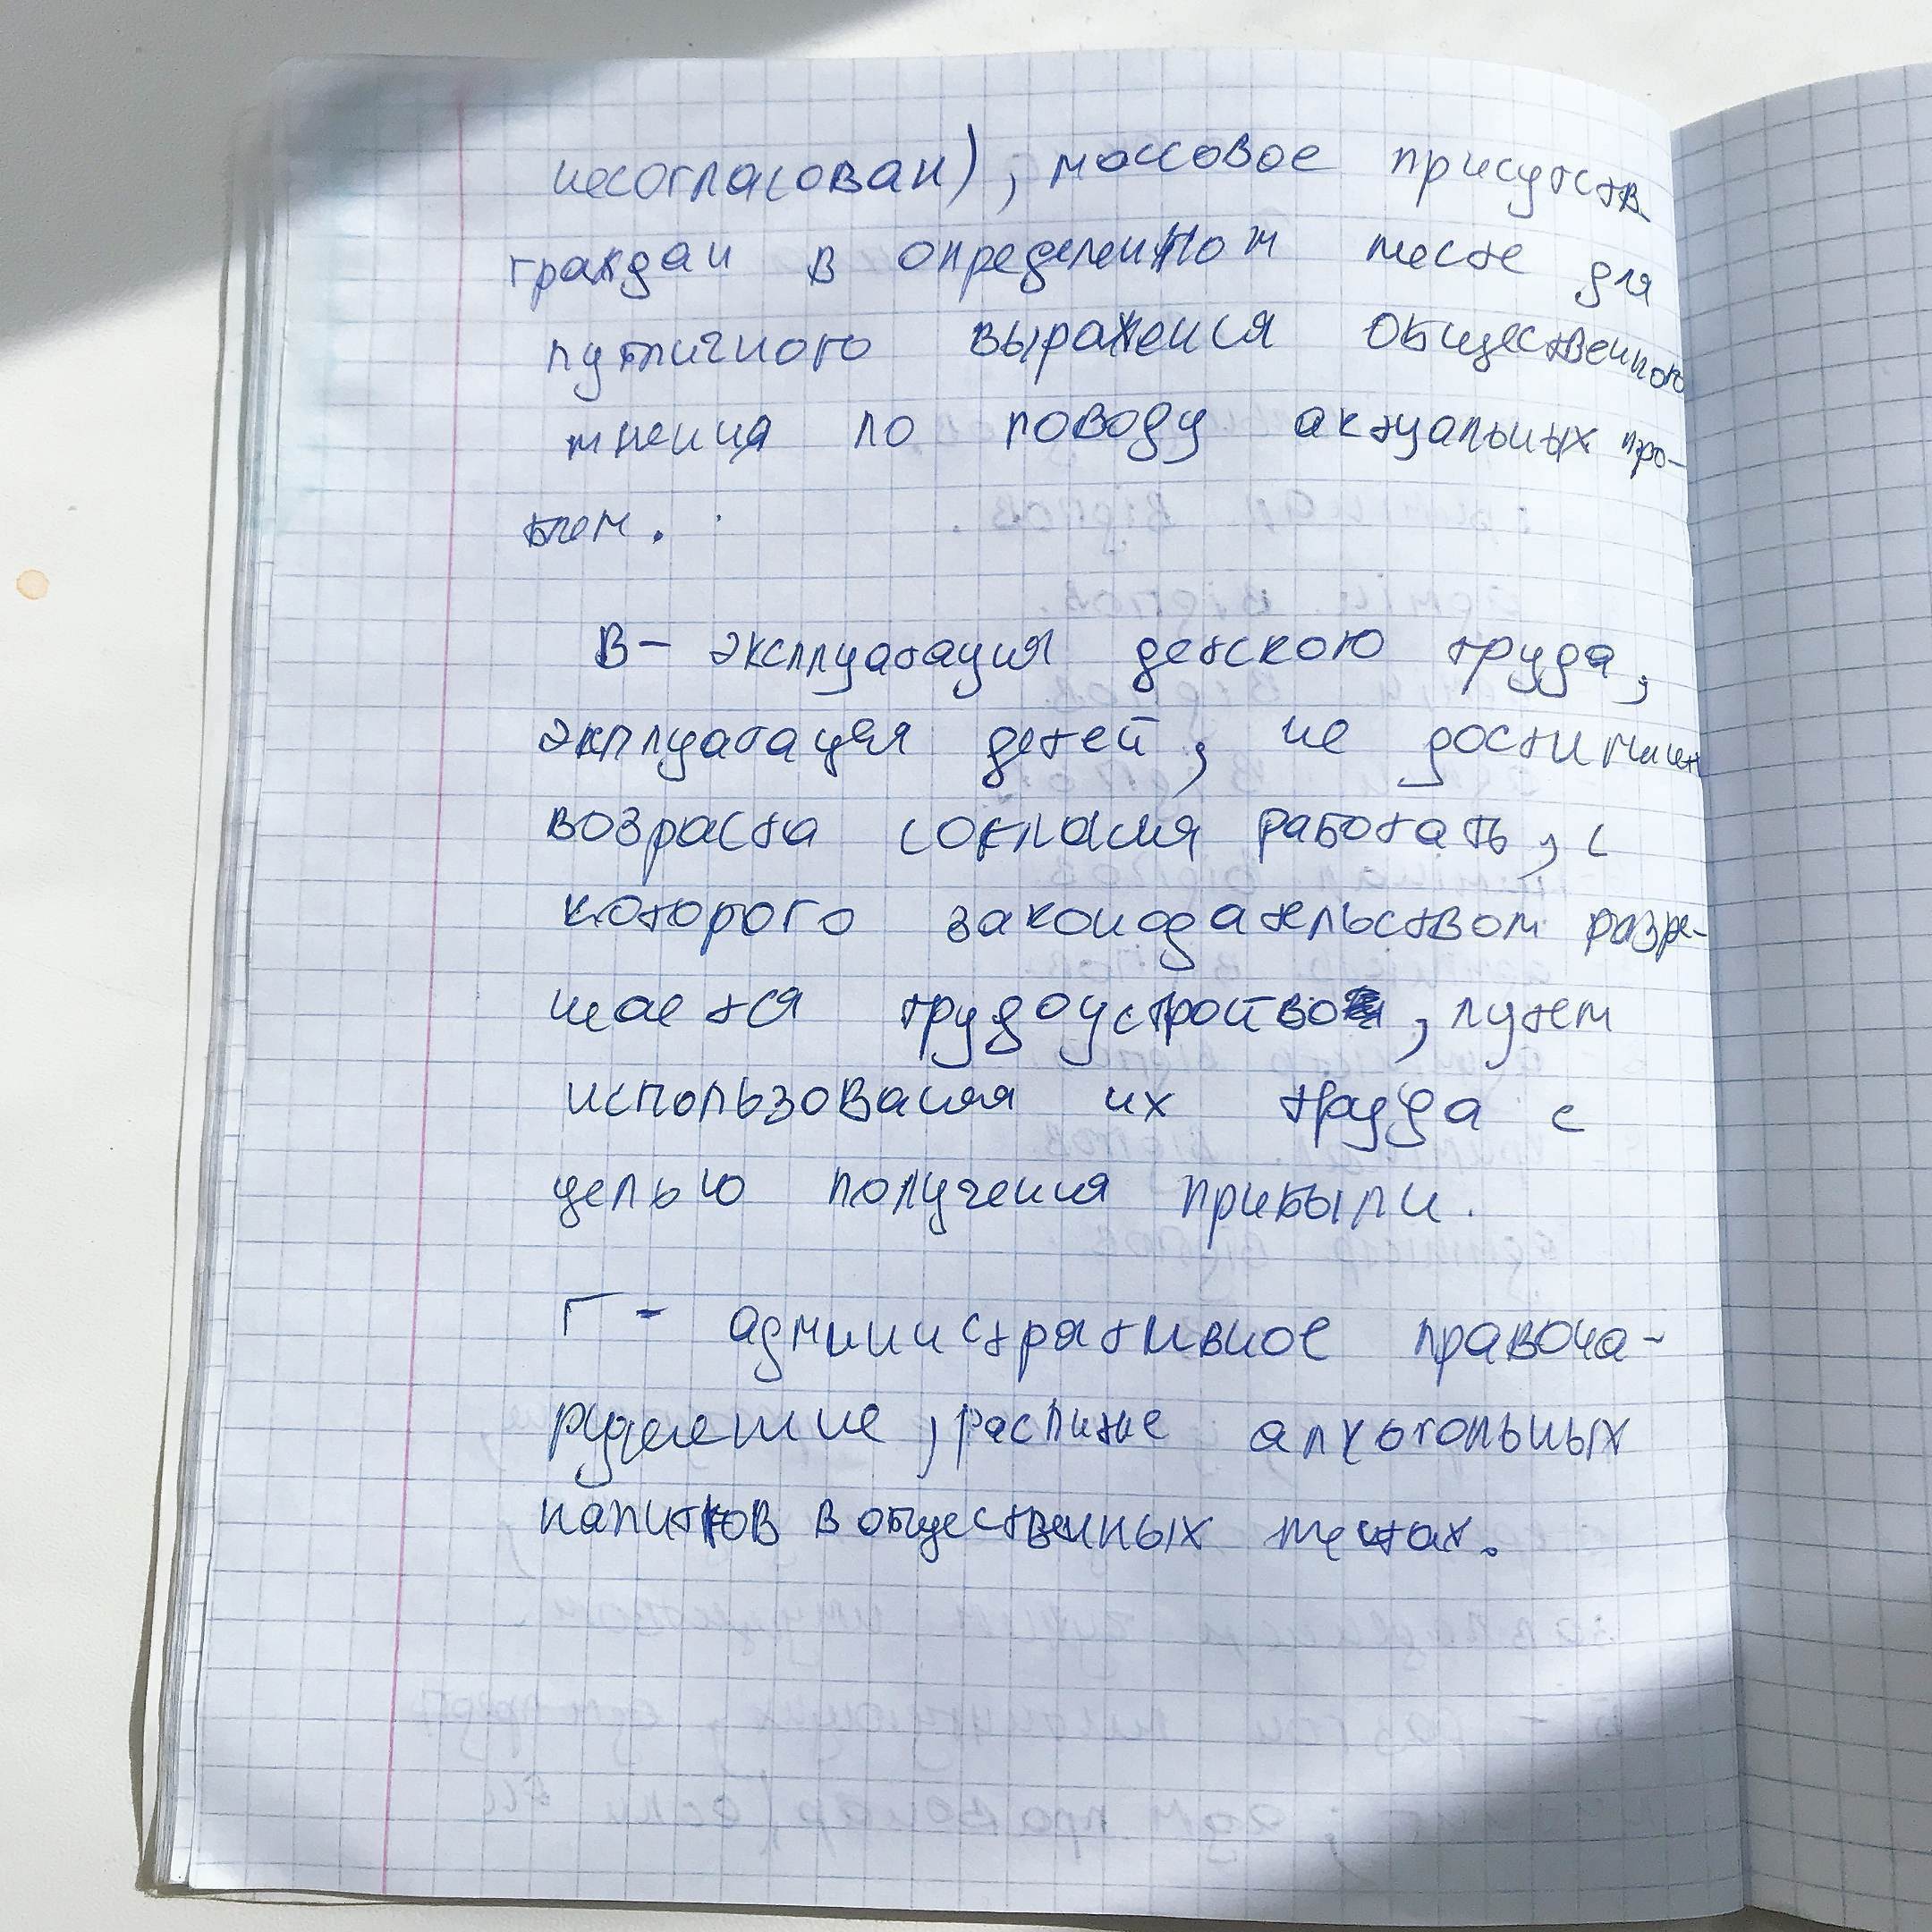 несогласован), массовое присутств
граждан в определенном месте для
публичного выражения общественного
мнения по поводу актуальных про-
блем.
В- эксплуатация детского труда,
эксплуатация детей, не достигших
возраста согласия работать, с
которого законодательством разре-
шается трудоустройство, путем
использования их труда с
целью получения прибыли.
Г- административное правона-
рушение, распитие алкогольных
напитков в общественных местах.